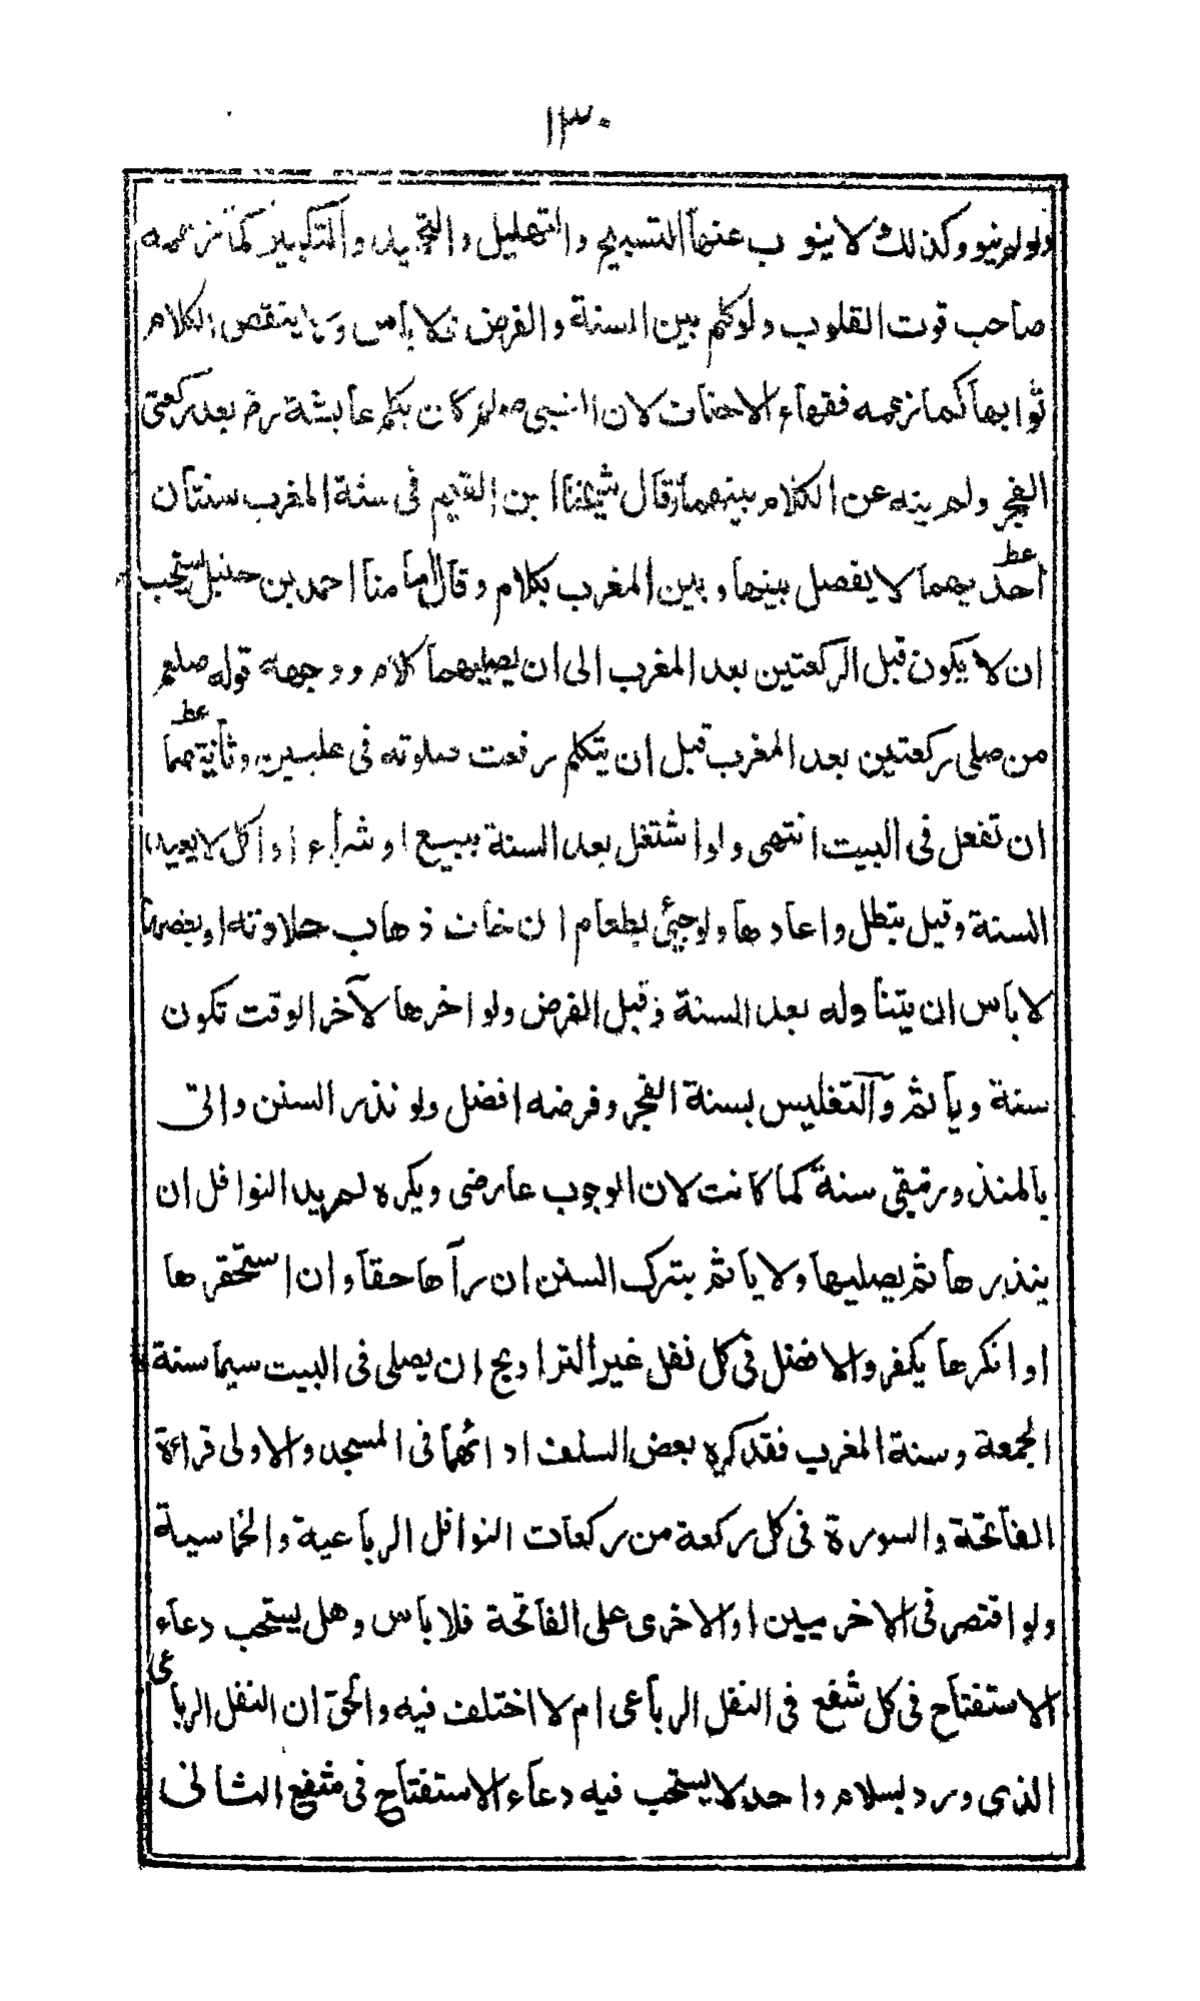 ١٣٠
ولو لم ينو وكذلك لا ينوب عنها التسبيح والتهليل والتحميد والتكبير كما زعمه
صاحب قوت القلوب ولو كلم بين السنة والفرض فلا بأس وما ينقص الكلام
ثوابها كما زعمه فقهاء الاحناف لان النبي صلعم كان يكلم عايشة رض بعد ركعتى
الفجر ولم ينه عن الكلام بينهما وقال شيخنا ابن القيم فى سنة المغرب سنتان
احدٰيهما لا يفصل بينها وبين المغرب بكلام وقال امامنا احمد بن حنبل يستحب
ان لا يكون قبل الركعتين بعد المغرب الى ان يصليهما كلام ووجهه قوله صلعم
من صلى ركعتين بعد المغرب قبل ان يتكلم رفعت صلوته فى عليين وثانيتهما
ان تفعل فى البيت انتهى ولو اشتغل بعد السنة ببيع او شراء او اكل لا يعيد
السنة وقيل بتطل واعادها ولو جيئ بطعام ان خاف ذهاب حلاوته او بعضها
لا باس ان يتناوله بعد السنة وقبل الفرض ولو اخرها لآخر الوقت تكون
سنة ويأثم والتغليس بسنة الفجر وفرضه افضل ولو نذر السنن واتى
بالمنذور تبقى سنة كما كانت لان الوجوب عارضى ويكره لمريد النوافل ان
ينذرها ثم يصليها ولا يأثم بترك السنن ان رآها حقا وان استحقرها
او انكرها يكفر والافضل فى كل نفل غير التراويح ان يصلى فى البيت سيما سنة
الجمعة وسنة المغرب فقد كره بعض السلف ادائهما فى المسجد والاولى قراءة
الفاتحة والسورة فى كل ركعة من ركعات النوافل الرباعية والخماسية
ولو اقتصر فى الاخريين او الاخرى على الفاتحة فلا باس وهل يستحب دعاء
الاستفتاح فى كل شفع فى النفل الرباعى ام لا اختلف فيه والحق ان النفل الرباعى
الذى ورد بسلام واحد لا يستحب فيه دعاء الاستفتاح فى شفع الثانى